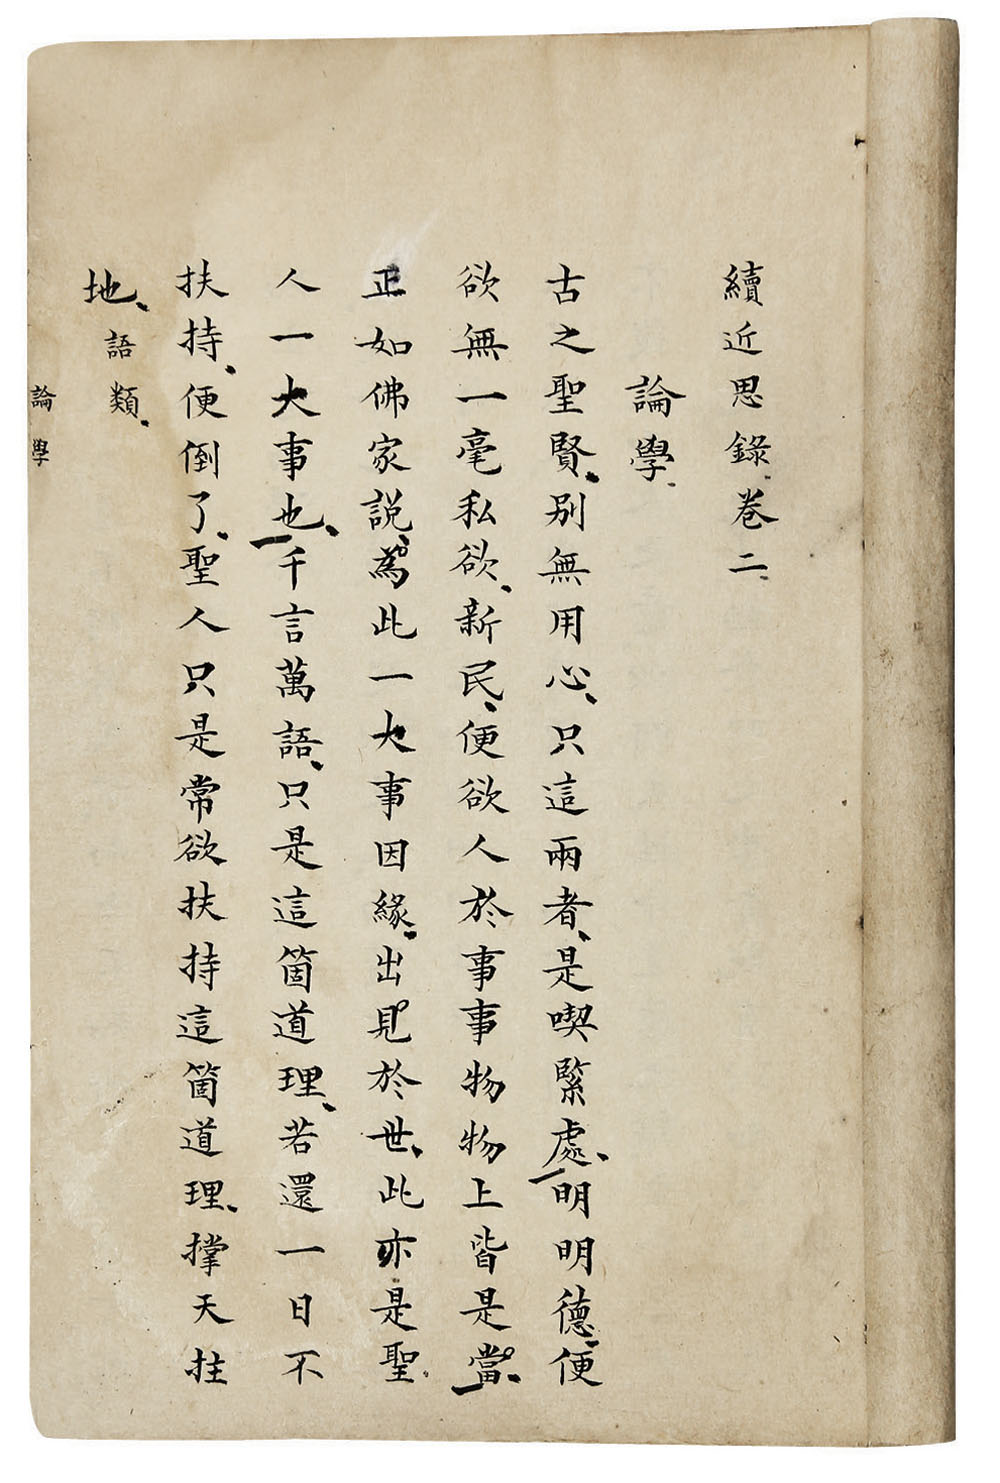 續近思錄卷二
論學
古之聖賢、別無用心、只這兩者、是喫緊處、明明德、便
欲無一毫私欲、新民、便欲人於事事物物上皆是當、
正如佛家說、為此一大事因緣、出見於世、此亦是聖
人一大事也、千言萬語、只是這箇道理、若還一日不
扶持、便倒了、聖人只是常欲扶持這箇道理、撑天拄
地、語類、
論學